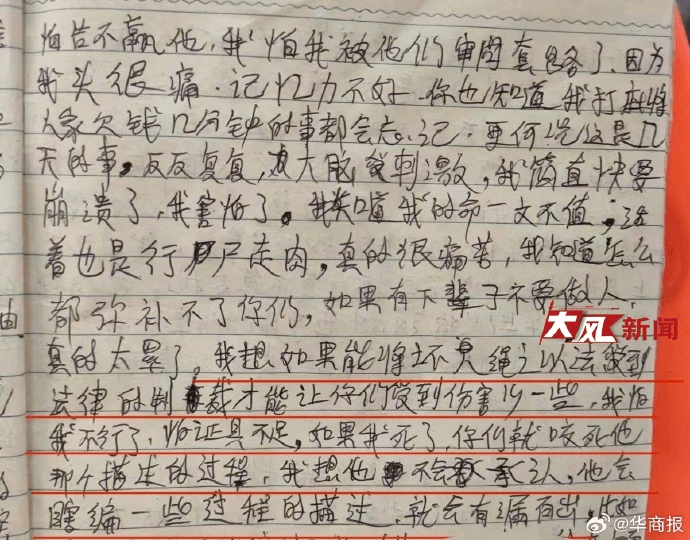 怕告不赢他,我怕我被他们审问套路了.因为
我头很痛.记忆力不好.你也知道我打麻将
人家欠钱几分钟的事都会忘记.更何况这是几
天的事,反反复复,大脑受刺激,我简直快要
崩溃了,我害怕了。我知道我的命一文不值,活
着也是行尸走肉,真的很痛苦,我知道怎么
都弥补不了你们,如果有下辈子不要做人.
由
真的太累了,我想如果能将坏人绳之以法受到
法律的制裁才能让你们受到伤害少一些,我怕
我不行了,怕证具不足,如果我死了,你们就咬死他
那个描述的过程,我想他不会承认,他会
瞎编一些过程的描述,就会有漏百出,
大风新闻
@华商报